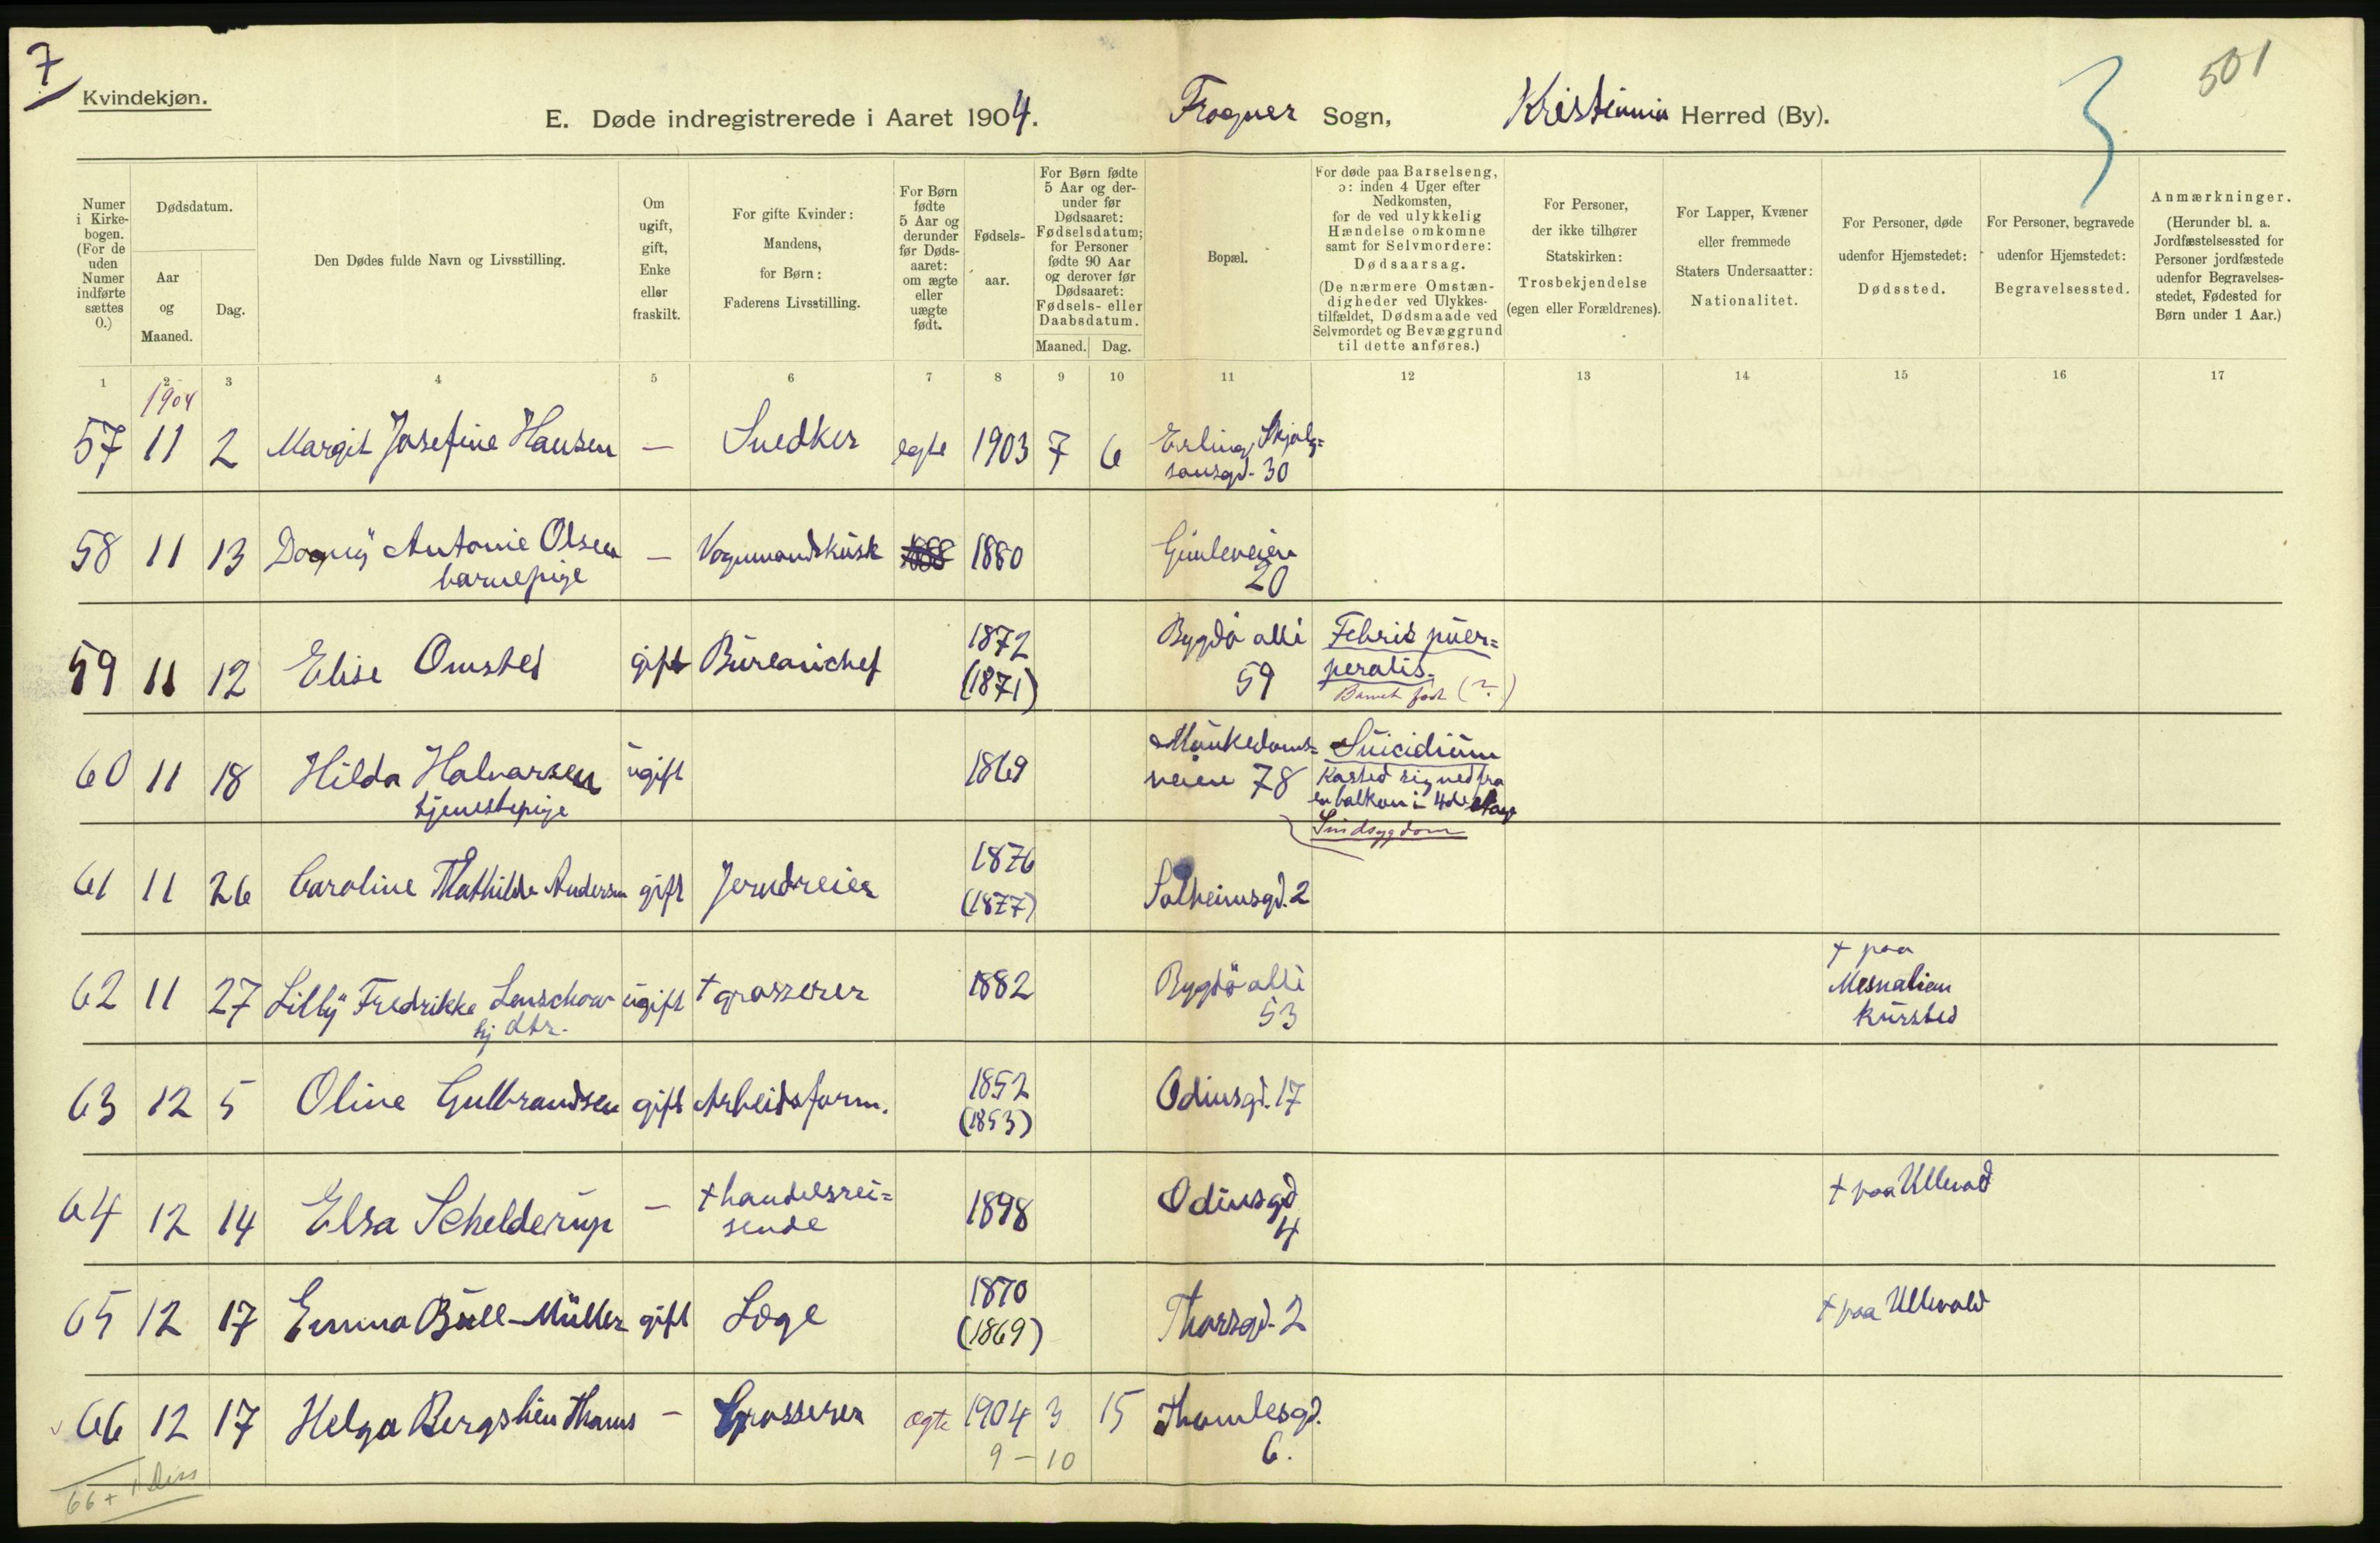 7
Kvindekjøn.
E. Døde indregistrerede i Aaret 1904. Frogner Sogn, Kristiania Herred (By).
3
501
Numer i Kirkebogen. (For de uden Numer indførte sættes 0.)
Dødsdatum.
Aar og Maaned.
Dag.
Den Dødes fulde Navn og Livsstilling.
Om ugift, gift, Enke eller fraskilt.
For gifte Kvinder: Mandens, for Børn: Faderens Livsstilling.
For Børn fødte 5 Aar og derunder før Dødsaaret: om ægte eller uægte født.
Fødselsaar.
For Børn fødte 5 Aar og derunder før Dødsaaret: Fødselsdatum; for Personer fødte 90 Aar og derover før Dødsaaret: Fødsels- eller Daabsdatum.
Maaned. Dag.
Bopæl.
For døde paa Barselseng, ɔ: inden 4 Uger efter Nedkomsten, for de ved ulykkelig Hændelse omkomne samt for Selvmordere: Dødsaarsag. (De nærmere Omstændigheder ved Ulykkestilfældet, Dødsmaade ved Selvmordet og Bevæggrund til dette anføres.)
For Personer, der ikke tilhører Statskirken: Trosbekjendelse (egen eller Forældrenes).
For Lapper, Kvæner eller fremmede Staters Undersaatter: Nationalitet.
For Personer, døde udenfor Hjemstedet: Dødssted.
For Personer, begravede udenfor Hjemstedet: Begravelsessted.
Anmærkninger. (Herunder bl. a. Jordfæstelsessted for Personer jordfæstede udenfor Begravelsesstedet, Fødested for Børn under 1 Aar.)
1 2 3 4 5 6 7 8 9 10 11 12 13 14 15 16 17
1904
57 11 2 Margit Josefine Hansen — Snedker egte 1903 7 6 Erling Skjalg=
sonsgd. 30
58 11 13 Dagny Antonie Olsen — Vognmandskusk 1880 Gimleveien
barnepige 20
59 11 12 Elise Omsted gift Bureauchef 1872 Bygdø allé Febris puer=
(1871) 59 peralis.
Barnet født (?)
60 11 18 Hilda Halvarsen ugift 1869 Munkedams= Suicidium
tjenestepige veien 78 Kasted sig ned fra
en balkon i 4de etage
Sindsygdom
61 11 26 Caroline Mathilde Andersen gift Jerndreier 1876
(1877) Solheimsgd. 2
62 11 27 Lilly Fredrikke Lenschow ugift + grosserer 1882 Bygdø allé + paa
hj dtr. 53 Mesnalien
kursted
63 12 5 Oline Gulbrandsen gift Arbeidsform. 1852 Odinsgd. 17
(1853)
64 12 14 Elsa Schelderup — + handelsrei= 1898 Odinsgd + paa Ullevold
sende 4
65 12 17 Emma Bull-Müller gift Læge 1870 Thorsgd. 2 + paa Ullevold
(1869)
66 12 17 Helga Bergslien Thams — Grosserer ægte 1904 3 15 Thomlesgd.
9 – 10 6.
66 + 1 Diss